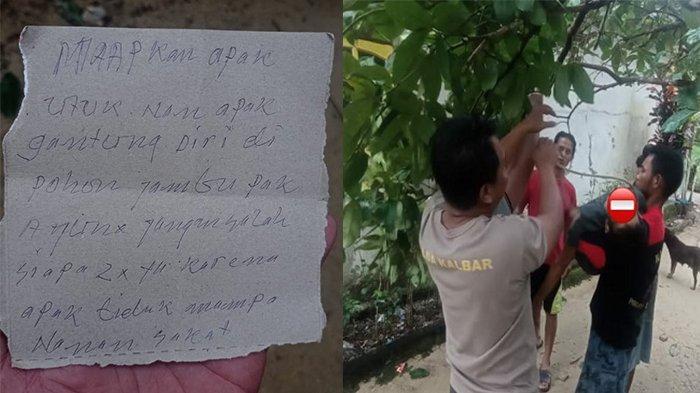 MAAPKan apak
Utuk Nan apak
gantung Diri di
Pohon jambu pak
jangan salah
siapa 2x
karena
apak tiduk mampo
Nanan sakat
KALBAR